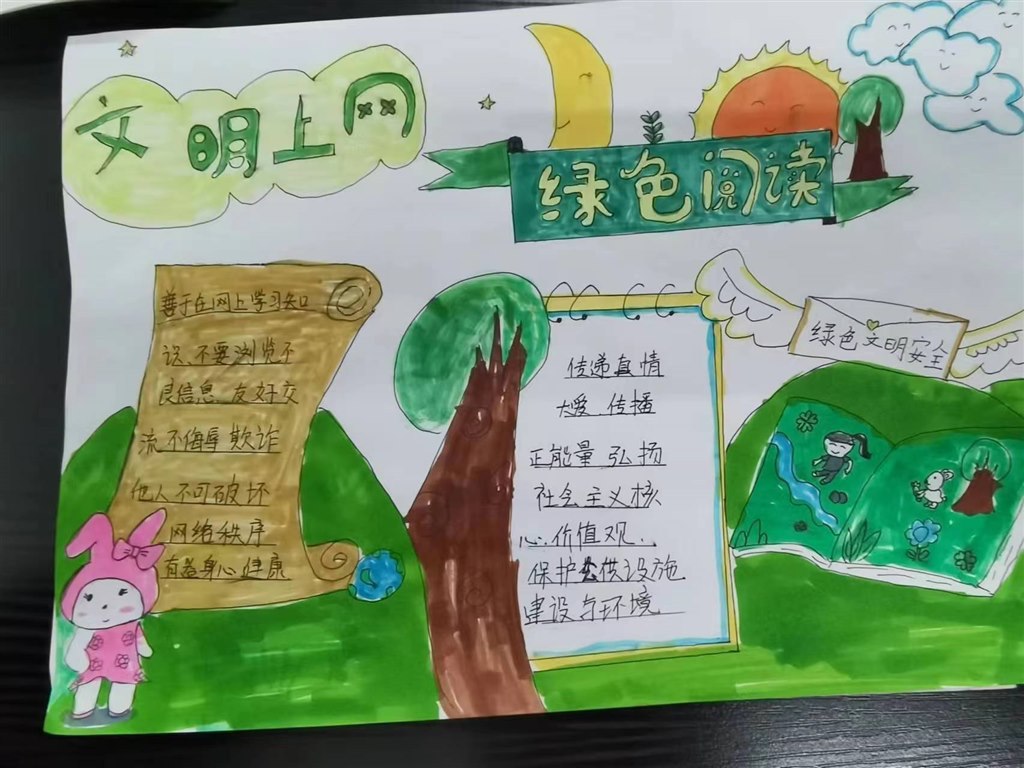 文明上网
绿色阅读
善于在网上学习知
识、不要浏览不
良信息、友好交
流 不侮辱 欺诈
他人 不可破坏
网络秩序
有益身心健康
传递真情
大爱、传播
正能量 弘扬
社会主义核
心、价值观、
保护 供设施
建设与环境
绿色文明安全